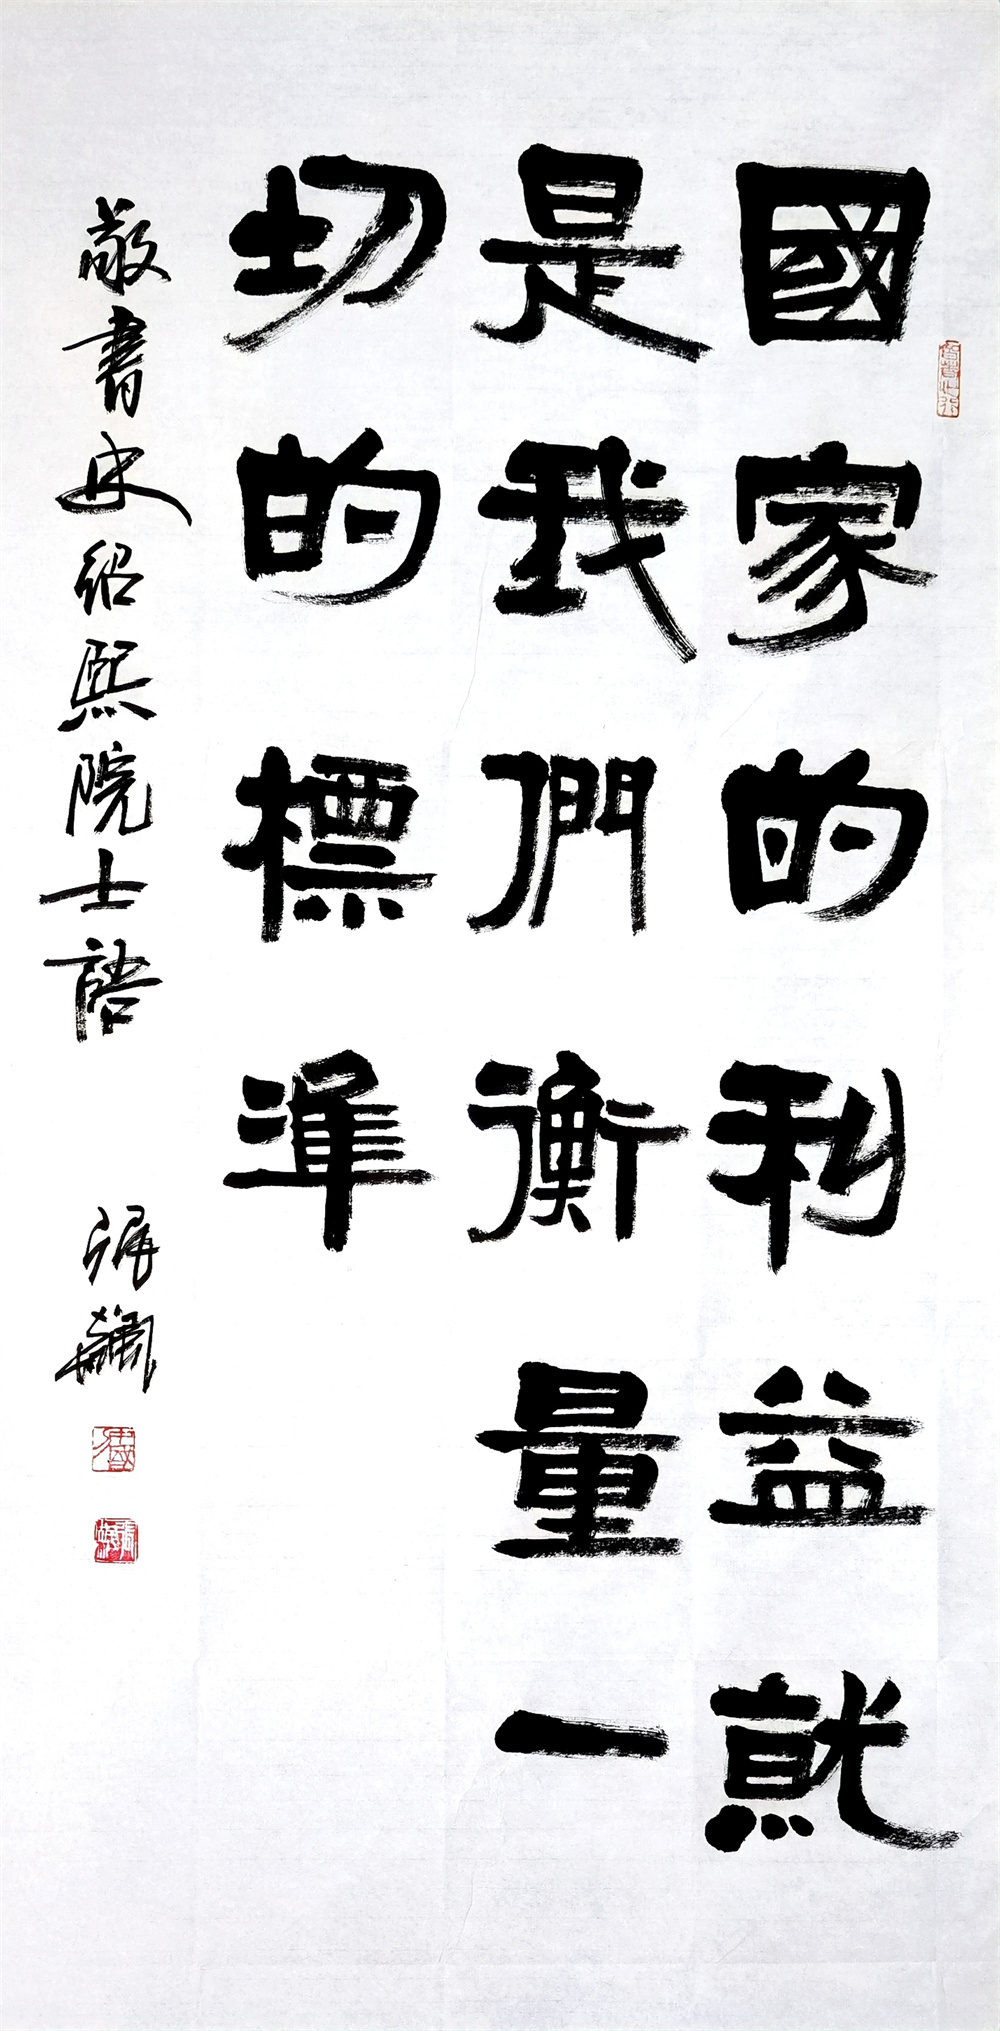 國家的利益就
是我們衡量一
切的標準
敬書史紹熙院士語